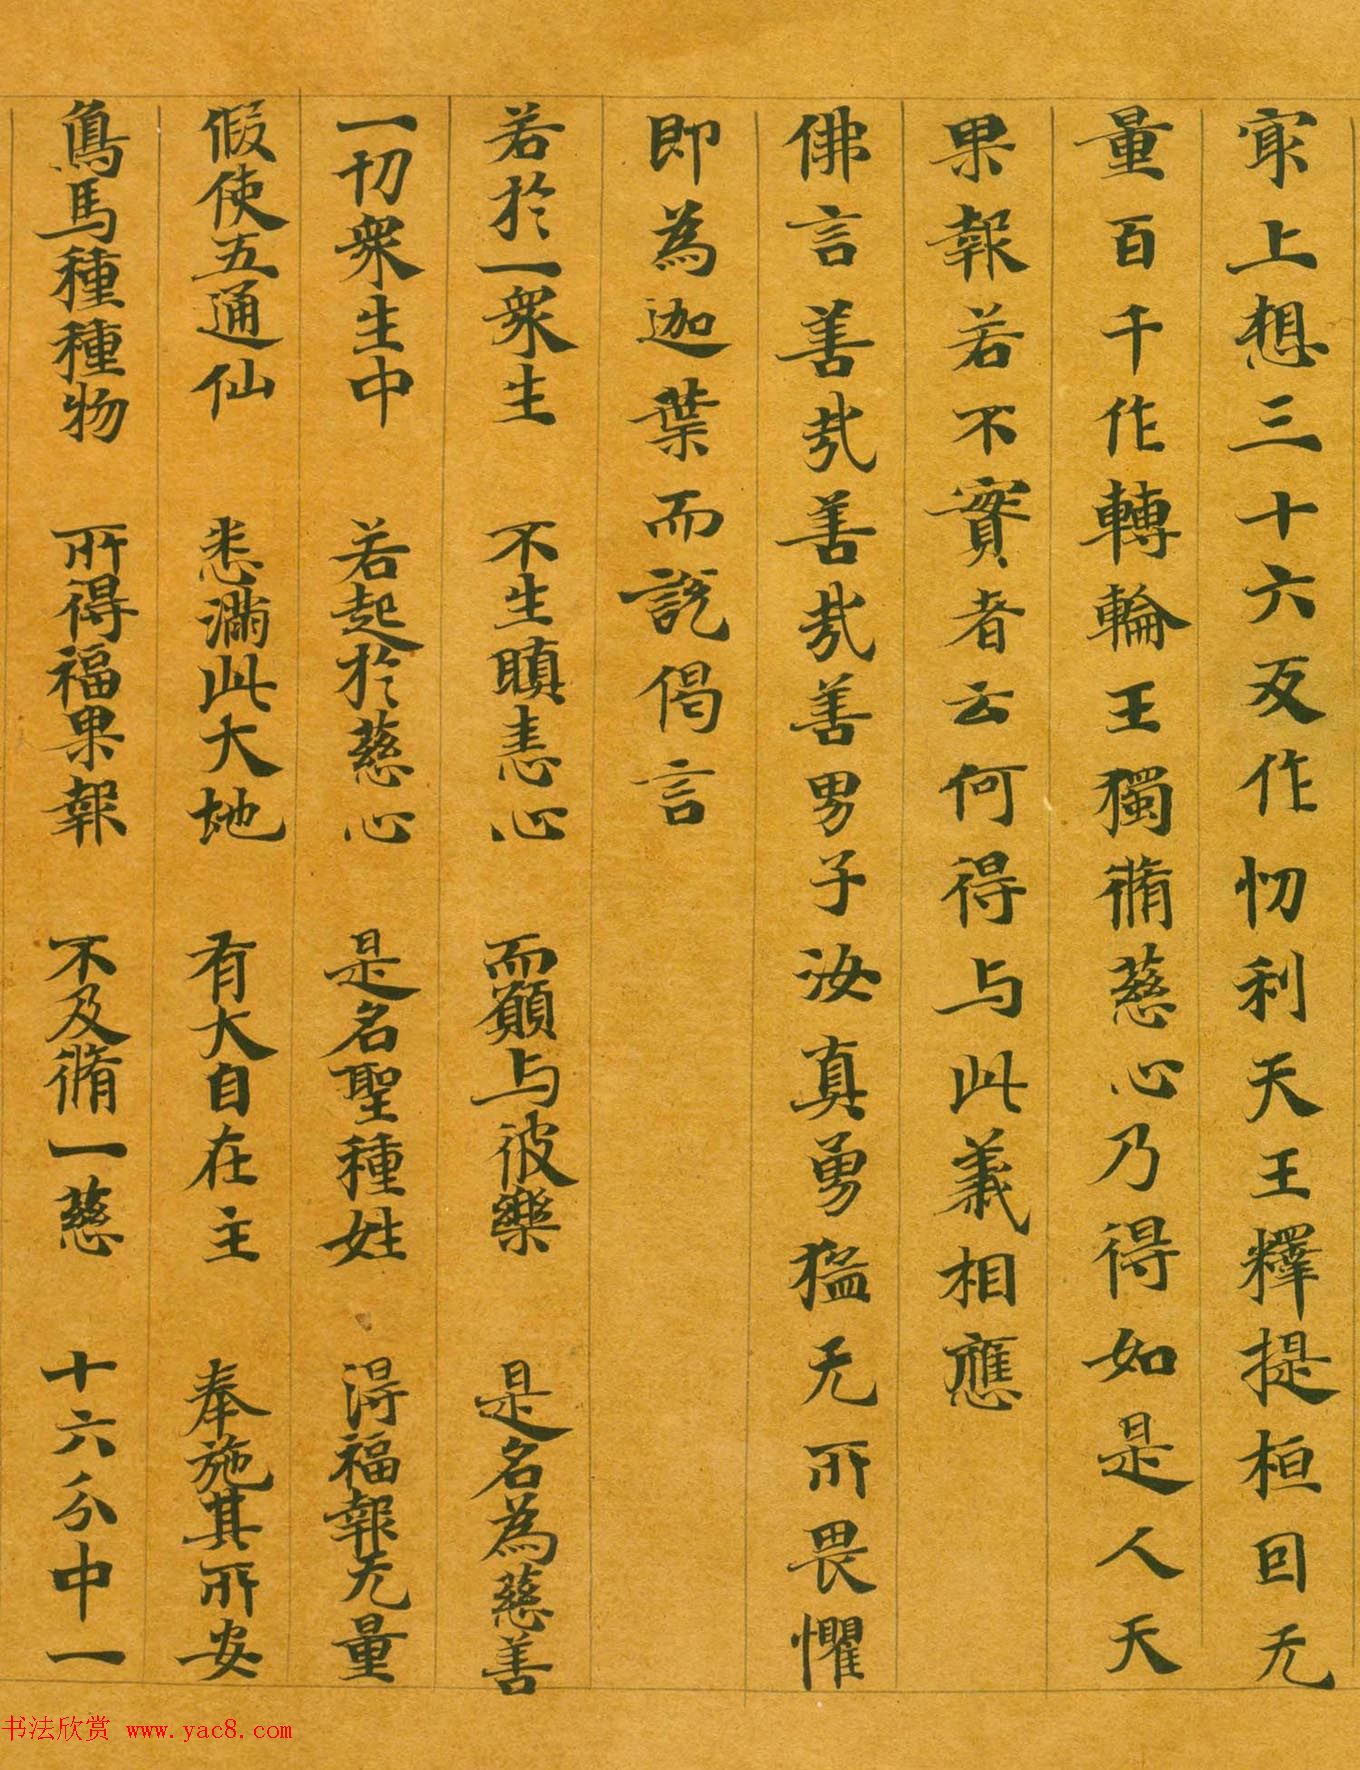 㝡上想三十六反作忉利天王釋提桓因无
量百千作轉輪王獨脩慈心乃得如是人天
果報若不實者云何得与此義相應
佛言善哉善哉善男子汝真勇猛无所畏懼
即為迦葉而說偈言
若於一衆生 不生瞋恚心 而願与彼樂 是名為慈善
一切衆生中 若起於慈心 是名聖種姓 得福報无量
假使五通仙 悉滿此大地 有大自在主 奉施其所安
鳥馬種種物 所得福果報 不及脩一慈 十六分中一
书法欣赏 www.yac8.com